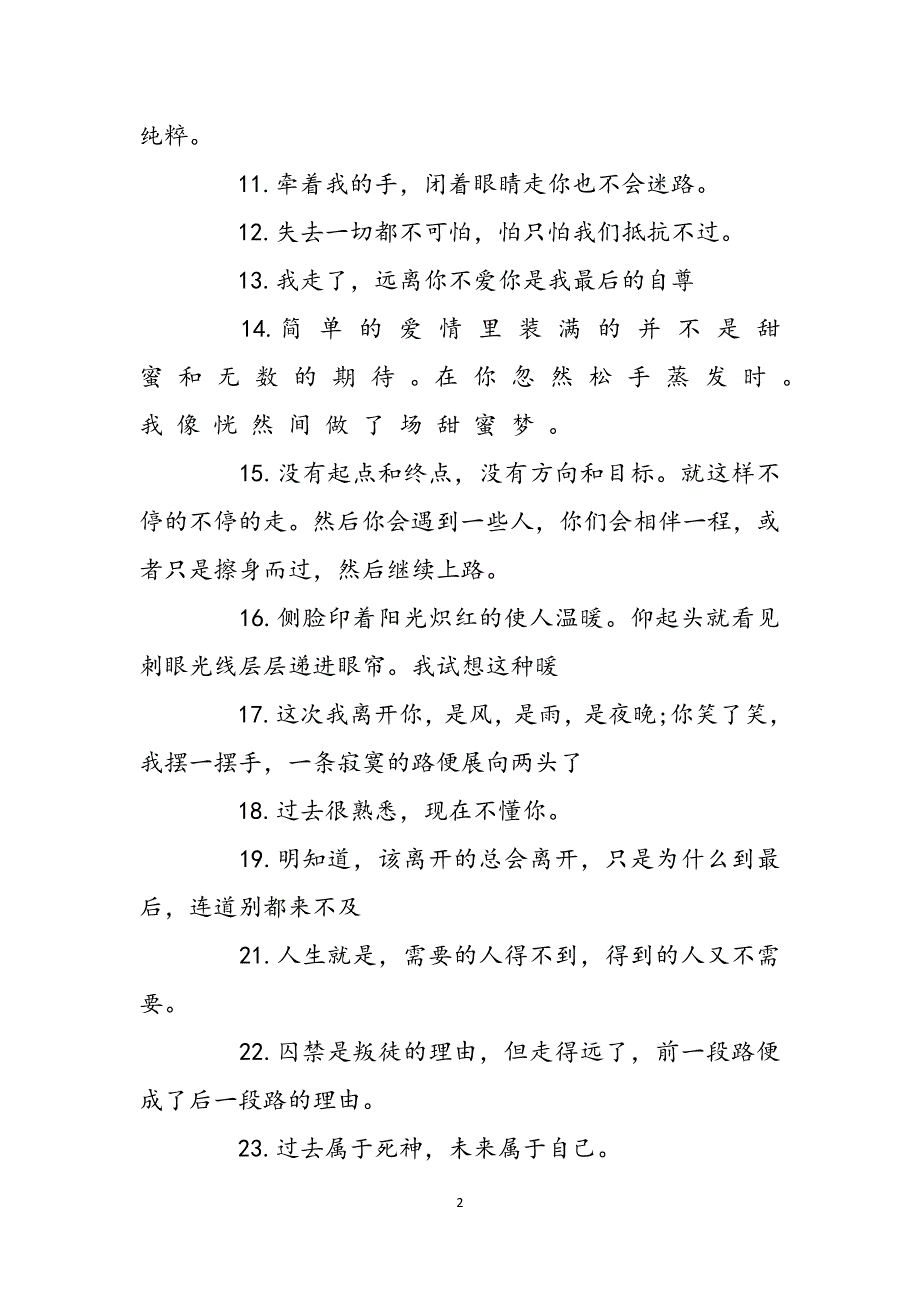 纯粹。
11.牵着我的手，闭着眼睛走你也不会迷路。
12.失去一切都不可怕，怕只怕我们抵抗不过。
13.我走了，远离你不爱你是我最后的自尊
14.简单的爱情里装满的并不是甜
蜜和无数的期待。在你忽然松手蒸发时。
我像恍然间做了场甜蜜梦。
15.没有起点和终点，没有方向和目标。就这样不
停的不停的走。然后你会遇到一些人，你们会相伴一程，或
者只是擦身而过，然后继续上路。
16.侧脸印着阳光炽红的使人温暖。仰起头就看见
刺眼光线层层递进眼帘。我试想这种暖
17.这次我离开你，是风，是雨，是夜晚;你笑了笑，
我摆一摆手，一条寂寞的路便展向两头了
18.过去很熟悉，现在不懂你。
19.明知道，该离开的总会离开，只是为什么到最
后，连道别都来不及
21.人生就是，需要的人得不到，得到的人又不需
要。
22.囚禁是叛徒的理由，但走得远了，前一段路便
成了后一段路的理由。
23.过去属于死神，未来属于自己。
2